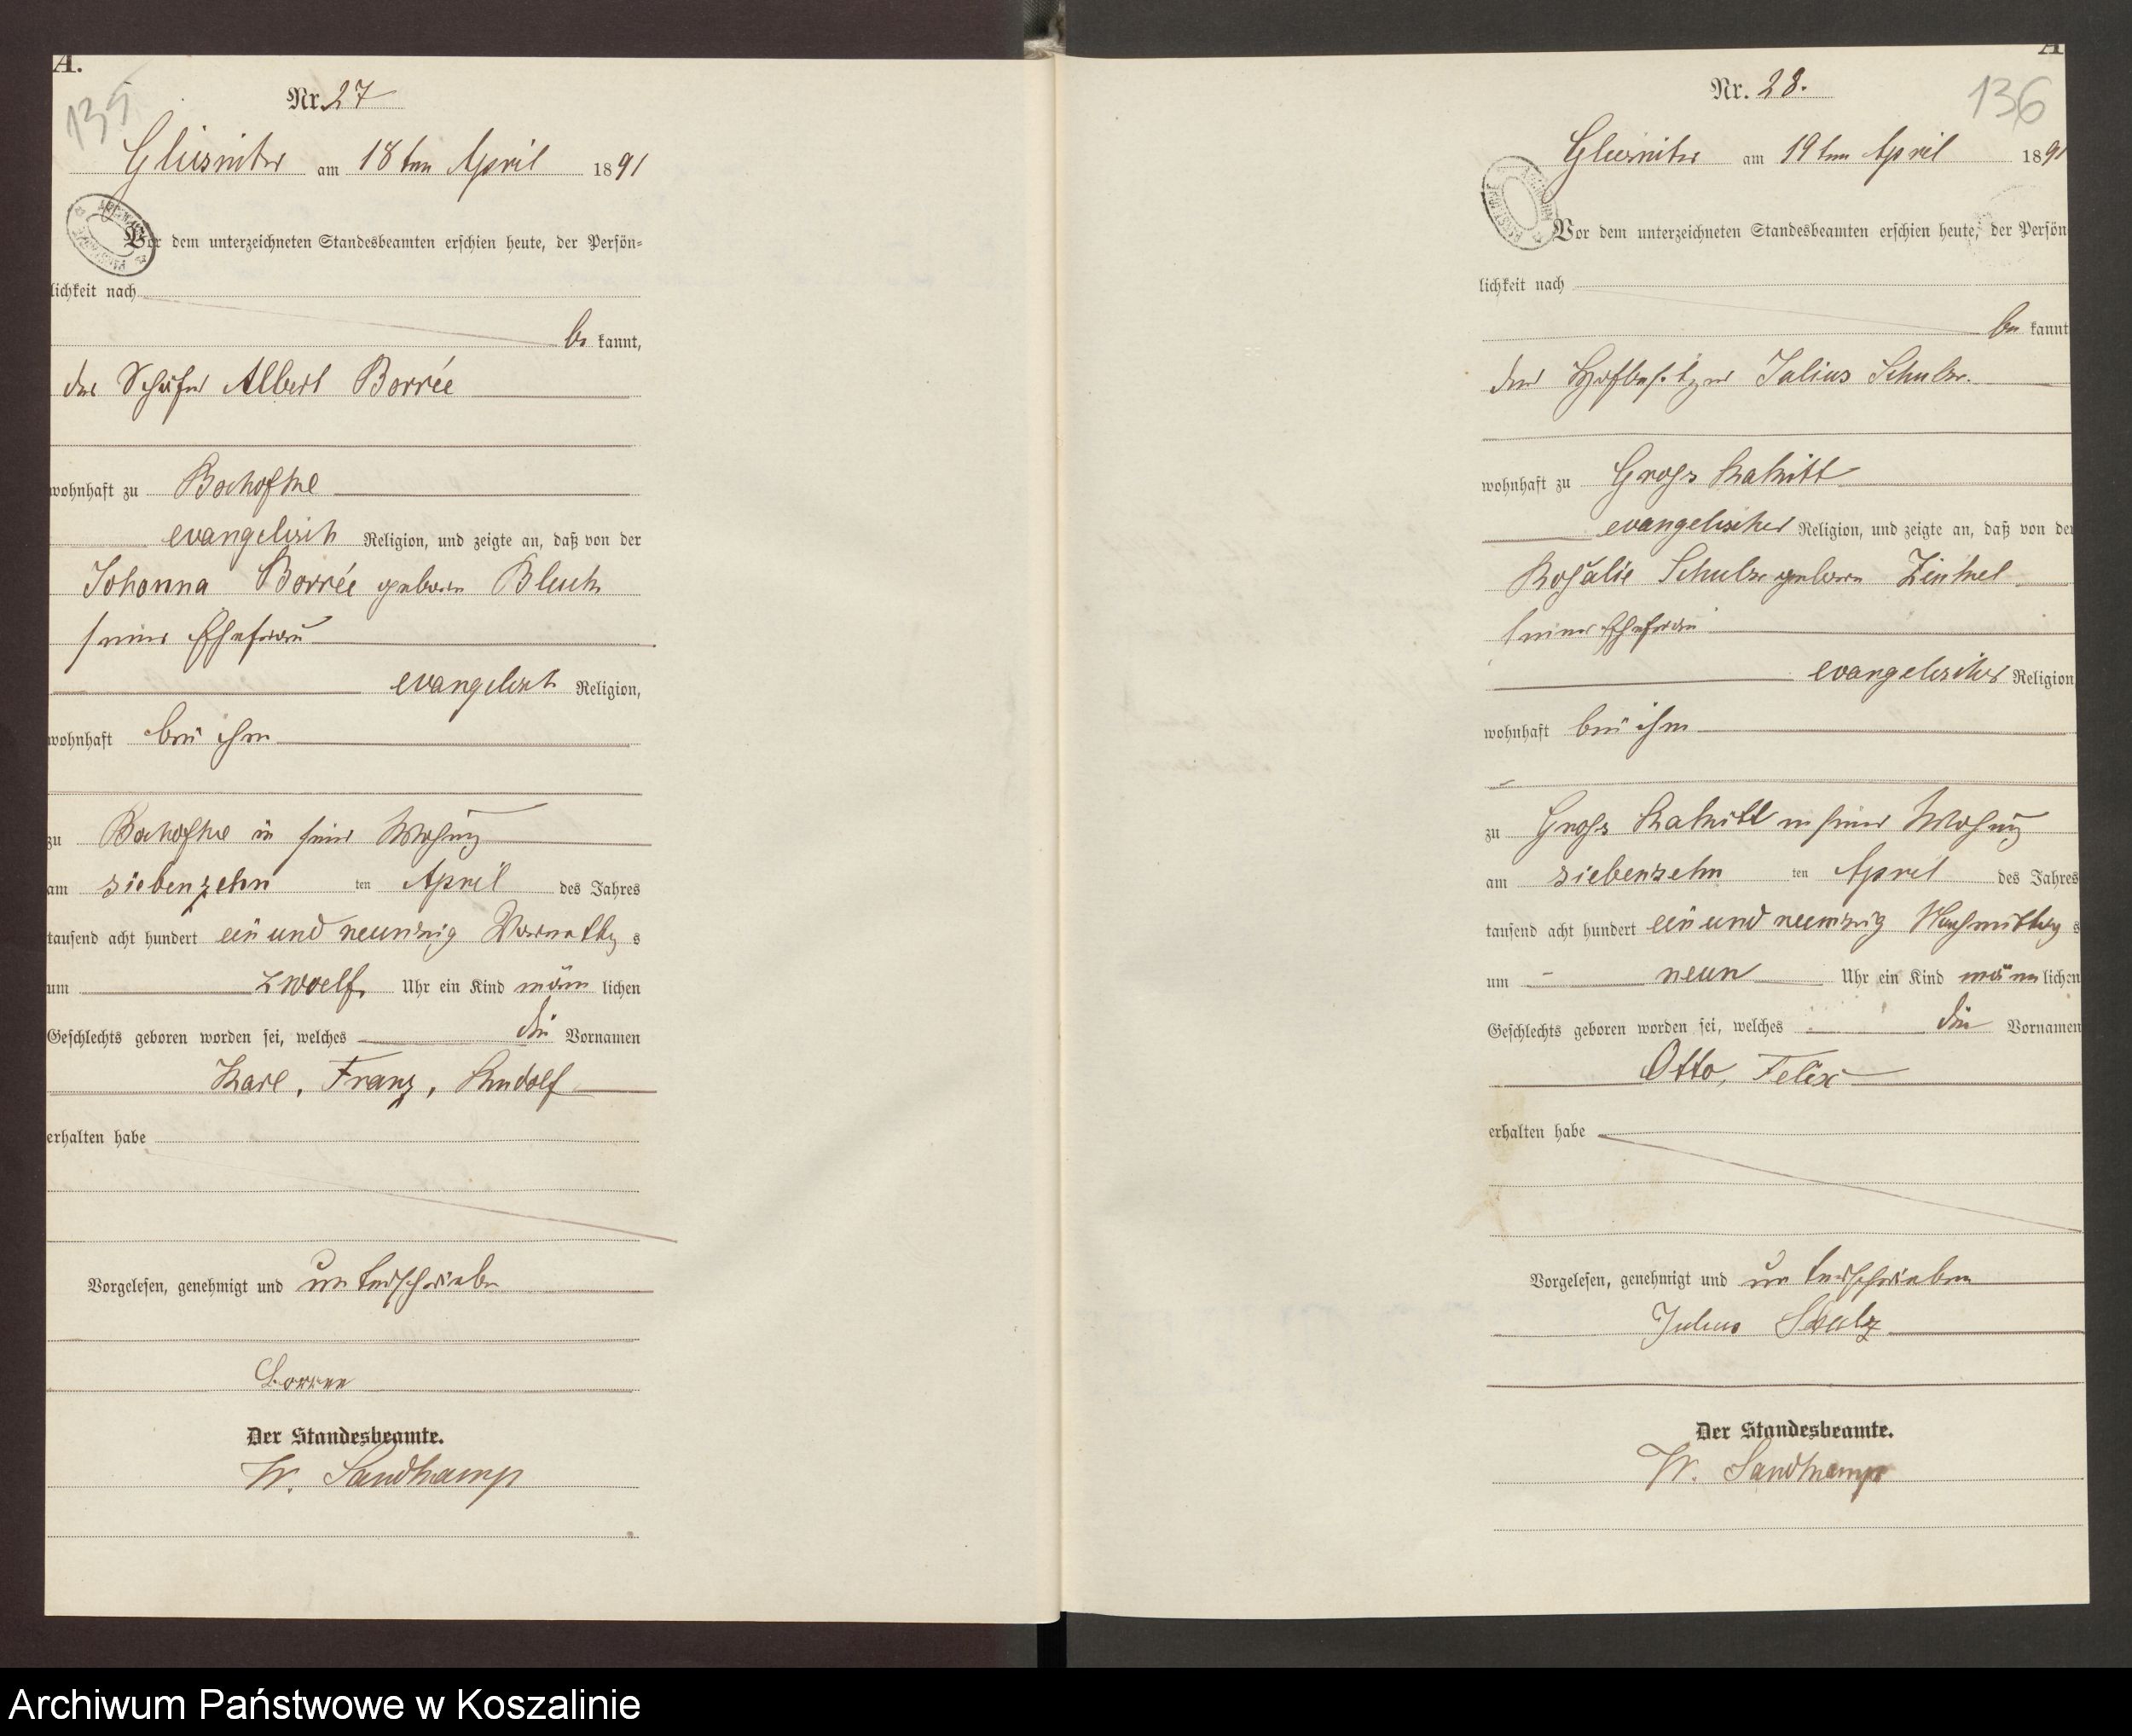 A.
135
Nr. 27
Gliesnitz am 18ten April 1891
Vor dem unterzeichneten Standesbeamten erschien heute, der Persön=
lichkeit nach
be kannt,
der Schäfer Albert Borrée
wohnhaft zu Bochofke
evangelisch Religion, und zeigte an, daß von der
Johanna Borrée geboren
seiner Ehefrau
evangelisch Religion,
wohnhaft bei ihm
zu Bochofke in seiner Wohnung
am siebenzehn ten April des Jahres
tausend acht hundert ein und neunzig Vormittag s
um zwoelf Uhr ein Kind männ lichen
Geschlechts geboren worden sei, welches die Vornamen
Karl, Franz, Rudolf
erhalten habe
Vorgelesen, genehmigt und unterschrieben
Borree
Der Standesbeamte.
W. Sandkamp
A
136
Nr. 28.
Gliesnitz am 19ten April 1891
Vor dem unterzeichneten Standesbeamten erschien heute, der Persön
lichkeit nach
be kannt
der Hofbesitzer Julius Schulz.
wohnhaft zu Gross Rakitt
evangelischer Religion, und zeigte an, daß von der
Rosalie Schulz geboren Zinkel
seiner Ehefrau
evangelischer Religion
wohnhaft bei ihm
zu Gross Rakitt in seiner Wohnung
am siebenzehn ten April des Jahres
tausend acht hundert ein und neunzig Nachmittag s
um neun Uhr ein Kind männ lichen
Geschlechts geboren worden sei, welches die Vornamen
Otto, Felix
erhalten habe
Vorgelesen, genehmigt und unterschrieben
Julius Schulz
Der Standesbeamte.
W. Sandkamp
Archiwum Państwowe w Koszalinie